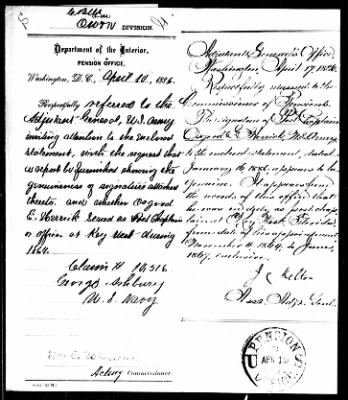 Own DIVISION.
Department of the Interior,
PENSION OFFICE,
Washington, D. C., April 10, 1886.
Respectfully referred to the
Adjutant General, U.S. Army
inviting attention to the enclosed
statement, with the request that
a report be furnished showing the
genuineness of signature attached
thereto, and whether Osgood
E. Herrick served as Post Chaplain
or officer at Key West during
1864.
Claim #
George Asbury
U. S. Navy
Acting Commissioner.
Adjutant General's Office,
Washington, April 17, 1886
Respectfully returned to the
Commissioner of Pensions.
The signature of Post Chaplain
Osgood E. Herrick, U.S. Army
to the enclosed statement, dated
January 16 1886, appears to be
genuine. It appears from
the records of this office that
he was on duty as post chap-
lain at Key West Florida,
from date of his appointment
November 4, 1864, to June,
1867, inclusive.
J C Kelton
Asst. Adjt. Genl.
U.S. PENSION OFFICE
APR 19